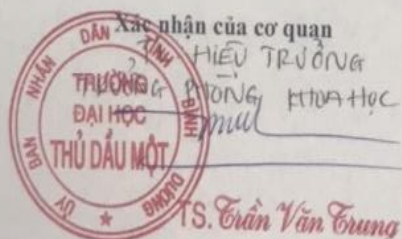 Xác nhận của cơ quan
HIỆU TRƯỞNG
TRƯỞNG PHÒNG KHOA HỌC
ỦY BAN NHÂN DÂN TỈNH BÌNH DƯƠNG
TRƯỜNG
ĐẠI HỌC
THỦ DẦU MỘT
TS. Trần Văn Trung